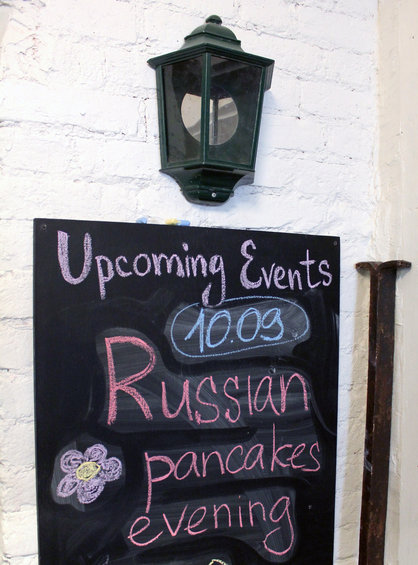 Upcoming Events
10.09
Russian
pancakes
evening